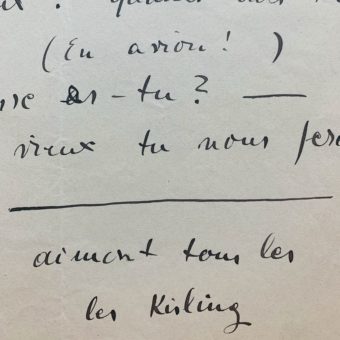 (En avion! )
es-tu? —
vieux tu nous fer
aiment tous les
les Kisling